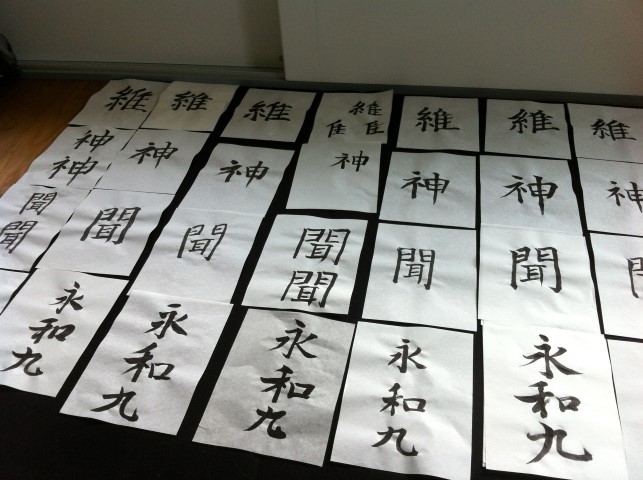 維 維 維 維 維 維 維
隹 隹
神 神 神 神 神 神 神
神
聞 聞 聞 聞 聞 聞
聞 聞
永 永 永 永 永
和 和 和 和 和
九 九 九 九 九